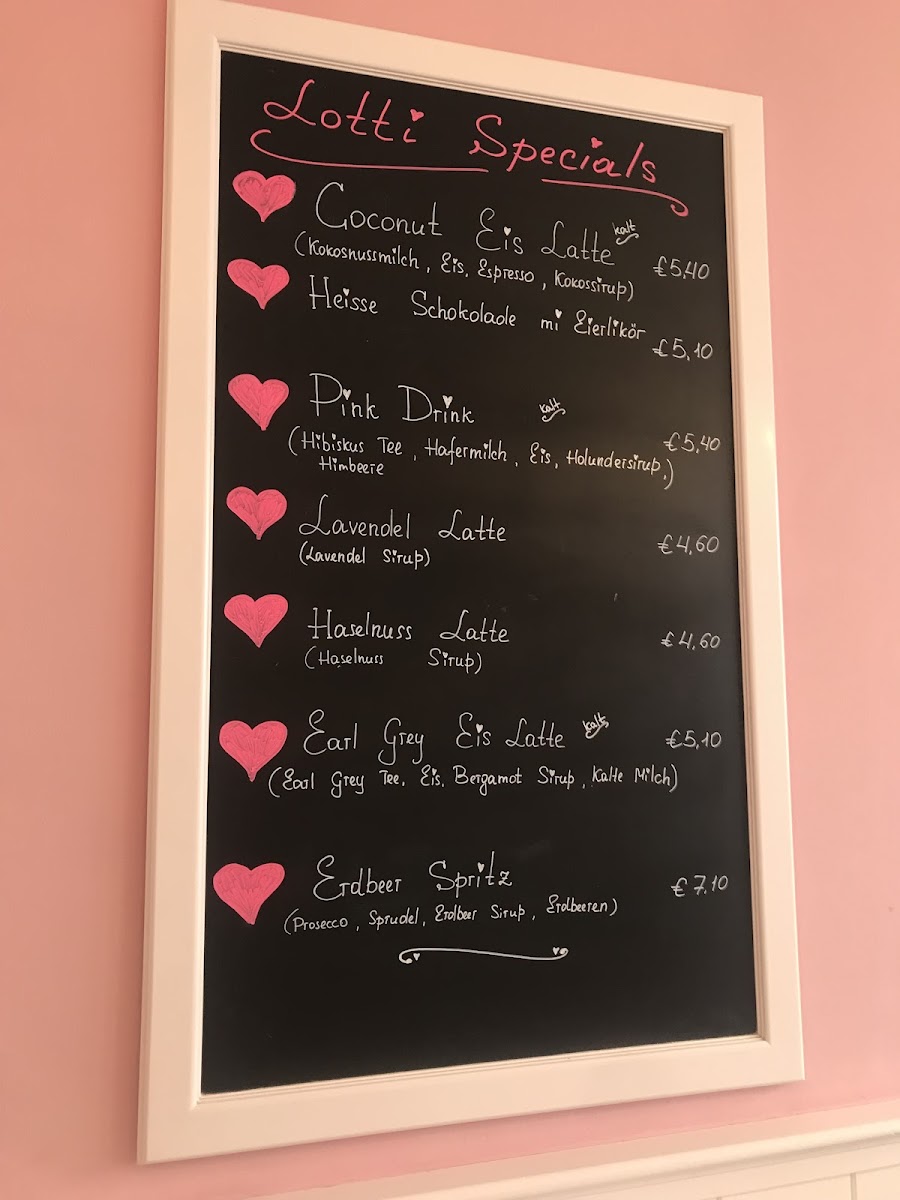 Lotti Specials
Coconut Eis Latte kalt €5,40
(Kokosnussmilch, Eis, Espresso, Kokossirup)
Heisse Schokolade mi Eierlikör €5,10
Pink Drink kalt €5,40
(Hibiskus Tee, Hafermilch, Eis, Holundersirup,
Himbeere )
Lavendel Latte €4,60
(Lavendel Sirup)
Haselnuss Latte €4,60
(Haselnuss Sirup)
Earl Grey Eis Latte kalt €5,10
(Earl Grey Tee, Eis, Bergamot Sirup, Kalte Milch)
Erdbeer Spritz €7,10
(Prosecco, Sprudel, Erdbeer Sirup, Erdbeeren)